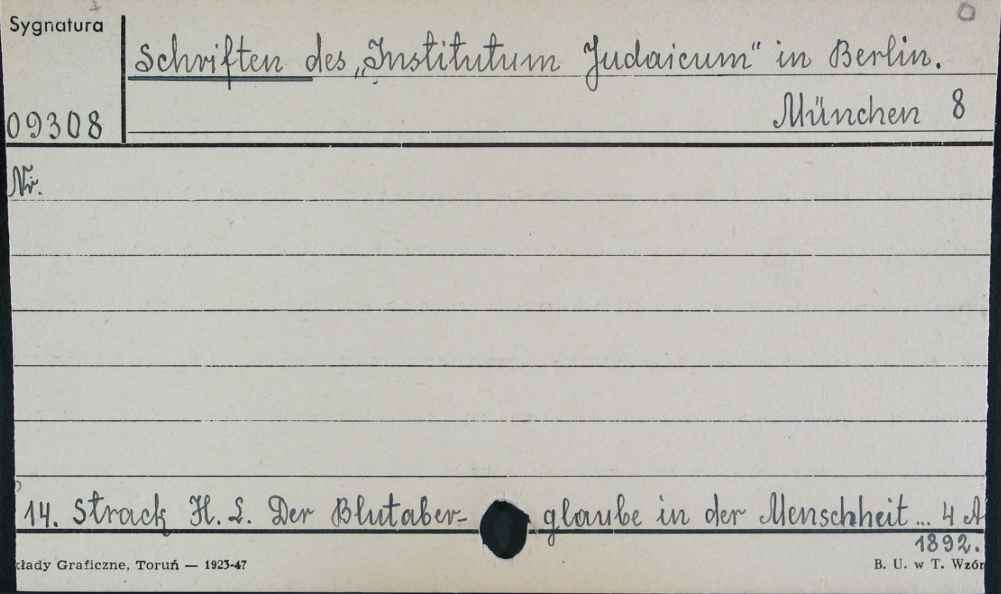 Sygnatura
Schriften des „Institutum Judaicum" in Berlin.
09308
München 8
Nr.
14. Strack H. L. Der Blutaber- glaube in der Menschheit... 4 A
1892.
kłady Graficzne, Toruń — 1923-47
B. U. w T. Wzór